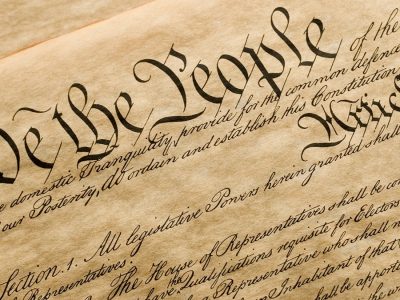 We the People of the
domestic Tranquility, provide for the common defence,
our Posterity, do ordain and establish this Constitution
Section. 1. All legislative Powers herein granted shall
Representatives.
The House of Representatives shall be com
have the Qualifications requisite for Electors
Representative who shall n
Inhabitant of that
shall be appor